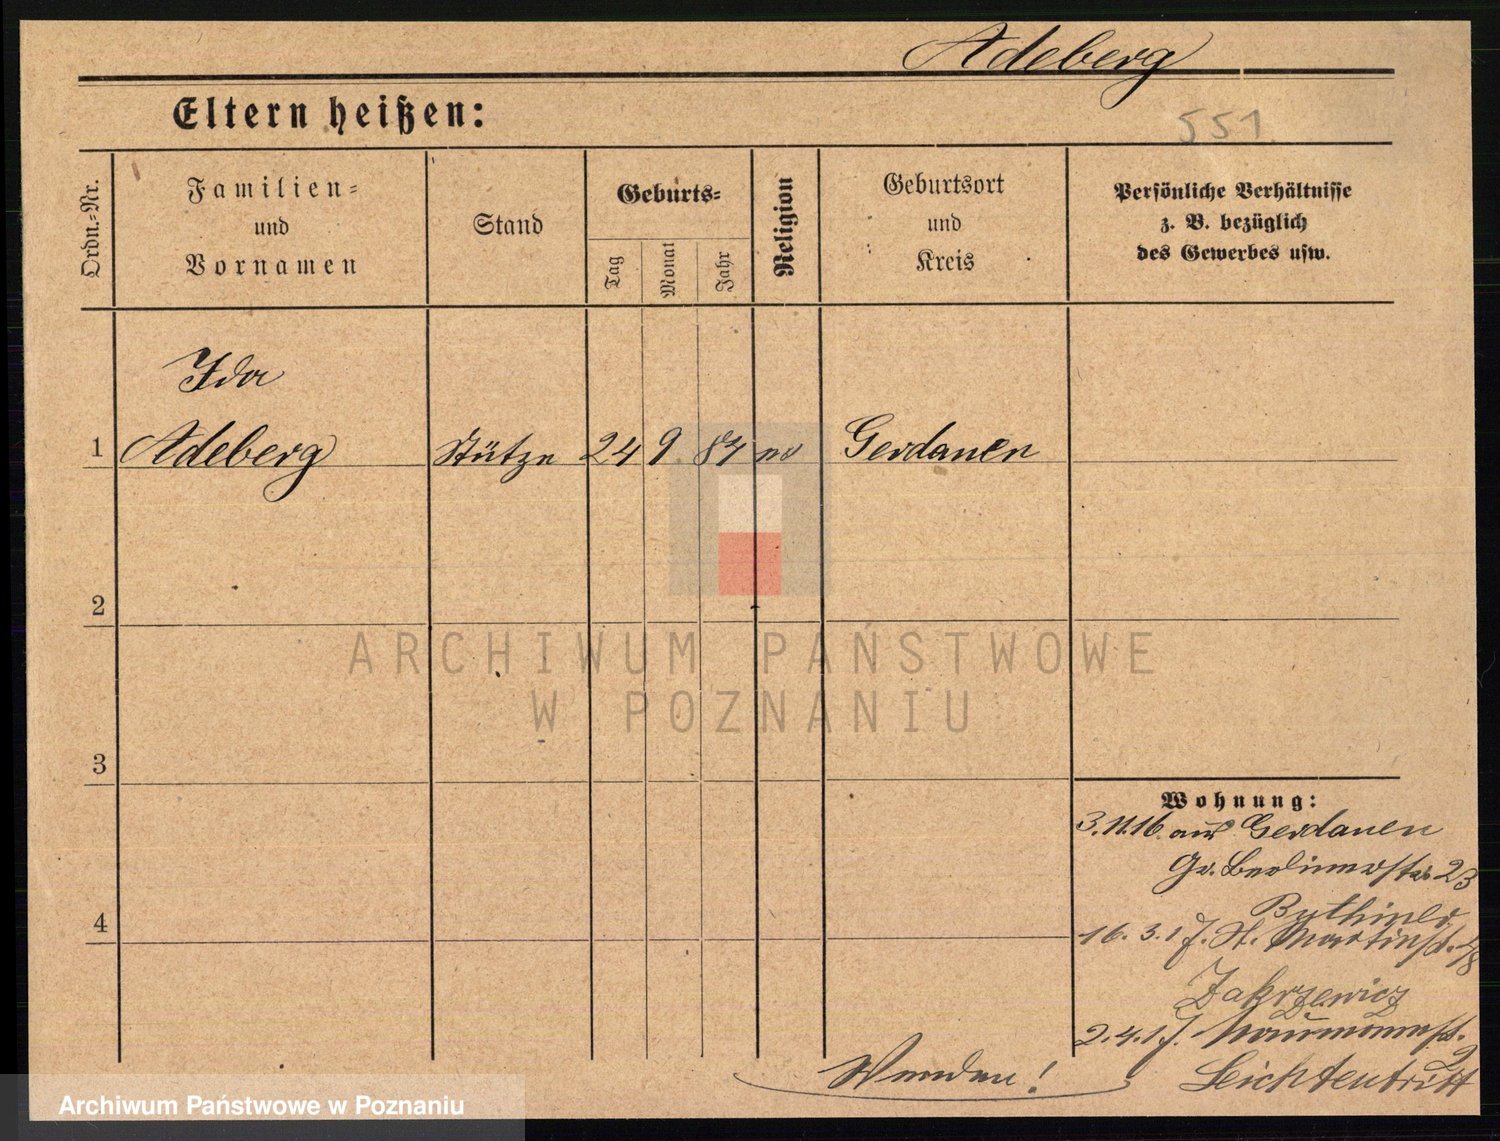 Adeberg
Eltern heißen:
551
Ordn.-Nr.
Familien-
und
Vornamen
Stand
Geburts-
Tag
Monat
Jahr
Religion
Geburtsort
und
Kreis
Persönliche Verhältnisse
z. B. bezüglich
des Gewerbes usw.
Ida
1 Adeberg Stütze 24 9 84 Gerdauen
2
ARCHIWUM PAŃSTWOWE
W POZNANIU
3
Wohnung:
3.11.16 aus Gerdauen
Gr. Berlinerstr. 23
4
16.3.17. St. Martinstr.
Zakrzewicz
2.4.17. Naumannstr. 9
Leichtentritt
Wenden!
Archiwum Państwowe w Poznaniu